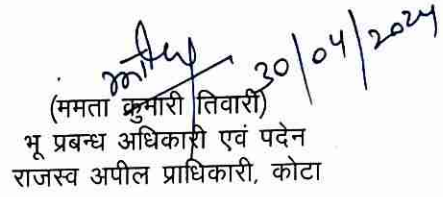 30/04/2024
(ममता कुमारी तिवारी)
भू प्रबन्ध अधिकारी एवं पदेन
राजस्व अपील प्राधिकारी, कोटा